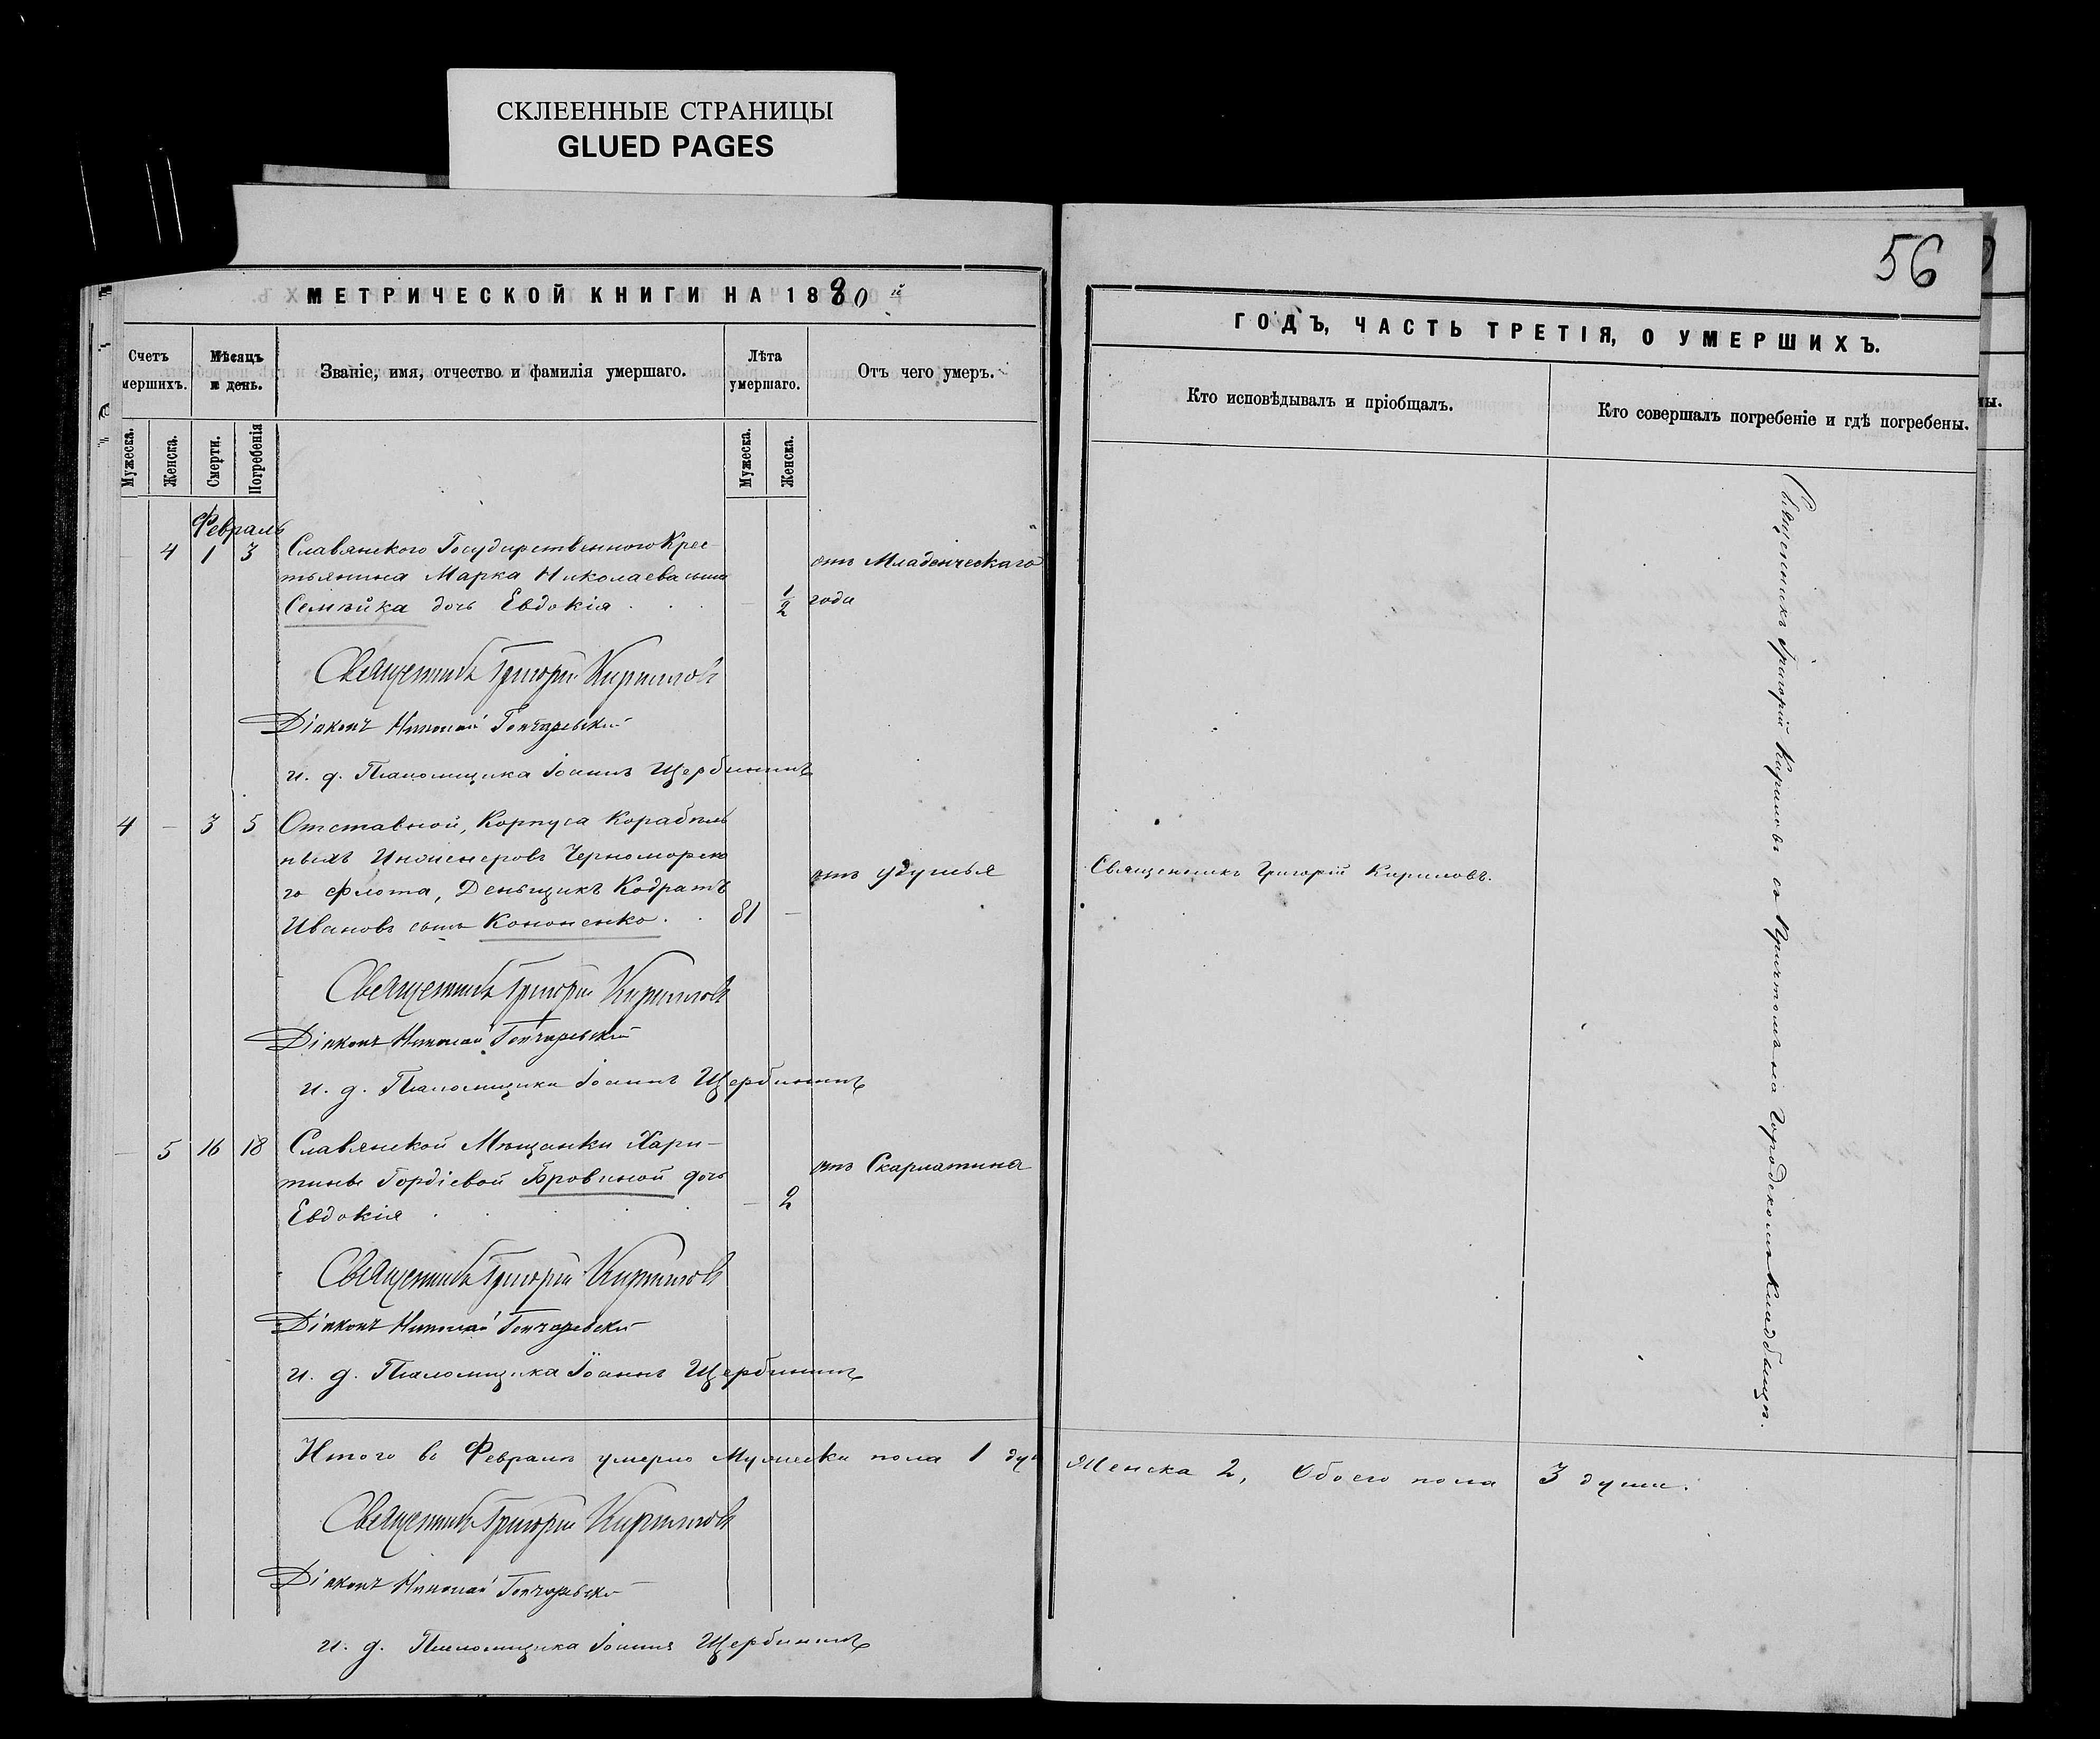 СКЛЕЕННЫЕ СТРАНИЦЫ
GLUED PAGES
56
МЕТРИЧЕСКОЙ КНИГИ НА 1880й
ГОДЪ, ЧАСТЬ ТРЕТІЯ, О УМЕРШИХЪ.
Счетъ
мершихъ.
Мѣсяцъ
и день.
Званіе, имя, отчество и фамилія умершаго.
Лѣта
умершаго.
Отъ чего умеръ.
Кто исповѣдывалъ и пріобщалъ.
Кто совершалъ погребеніе и гдѣ погребены.
Мужеска.
Женска.
Смерти.
Погребенія
Мужеска.
Женска.
Февраль
4 1 3 Славянского Государственного Крес-
тьянина Марка Николаева сына
Семѣйка дочь Евдокія . . . — 1/2 года
отъ Младенческаго
Священникъ Григорій Кириловъ
Діаконъ Николай Гончаревскій
и. д. Псаломщика Іоаннъ Щербининъ
4 — 3 5 Отставной, Корпуса Корабель
ныхъ Инженеровъ Черноморско
го флота, Деньщикъ Кодратъ
Ивановъ сынъ Кононенко . . 81 —
отъ удушья
Священникъ Григорій Кириловъ.
Священникъ Григорій Кириловъ
Діаконъ Николай Гончаревскій
и. д. Псаломщика Іоаннъ Щербининъ
— 5 16 18 Славянской Мѣщанки Хари-
тины Гордіевой Бровиной дочь
Евдокія . . . . . — 2
отъ Скарлатина
Священникъ Григорій Кириловъ
Діаконъ Николай Гончаревскій
и. д. Псаломщика Іоаннъ Щербининъ
Священникъ Григорій Кириловъ съ Причтомъ на Городскомъ Кладбищѣ.
Итого въ Февралѣ умерло Мужеска пола 1 душ Женска 2, Обоего пола 3 души.
Священникъ Григорій Кириловъ
Діаконъ Николай Гончаревскій
и. д. Псаломщика Іоаннъ Щербининъ